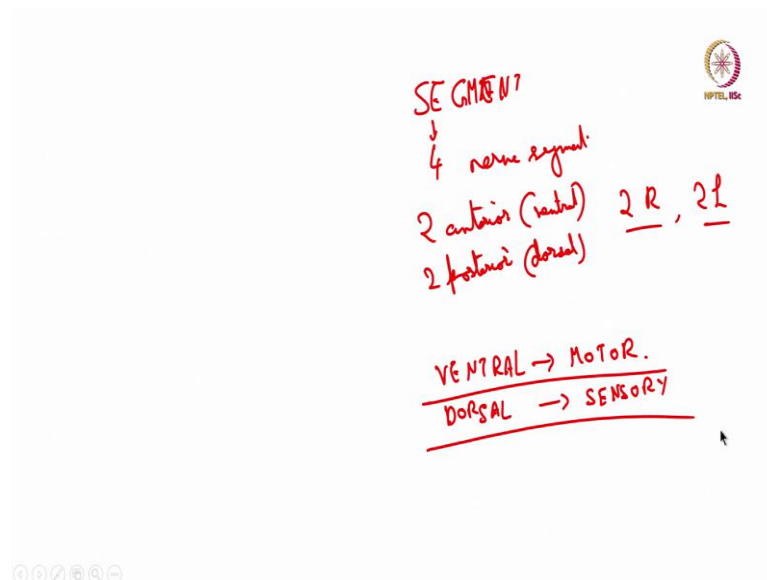 NPTEL, IISc
SEGMENT
↓
4 nerve segment
2 anterior (ventral) 2 R, 2 L
2 posterior (dorsal)
VENTRAL → MOTOR.
DORSAL → SENSORY